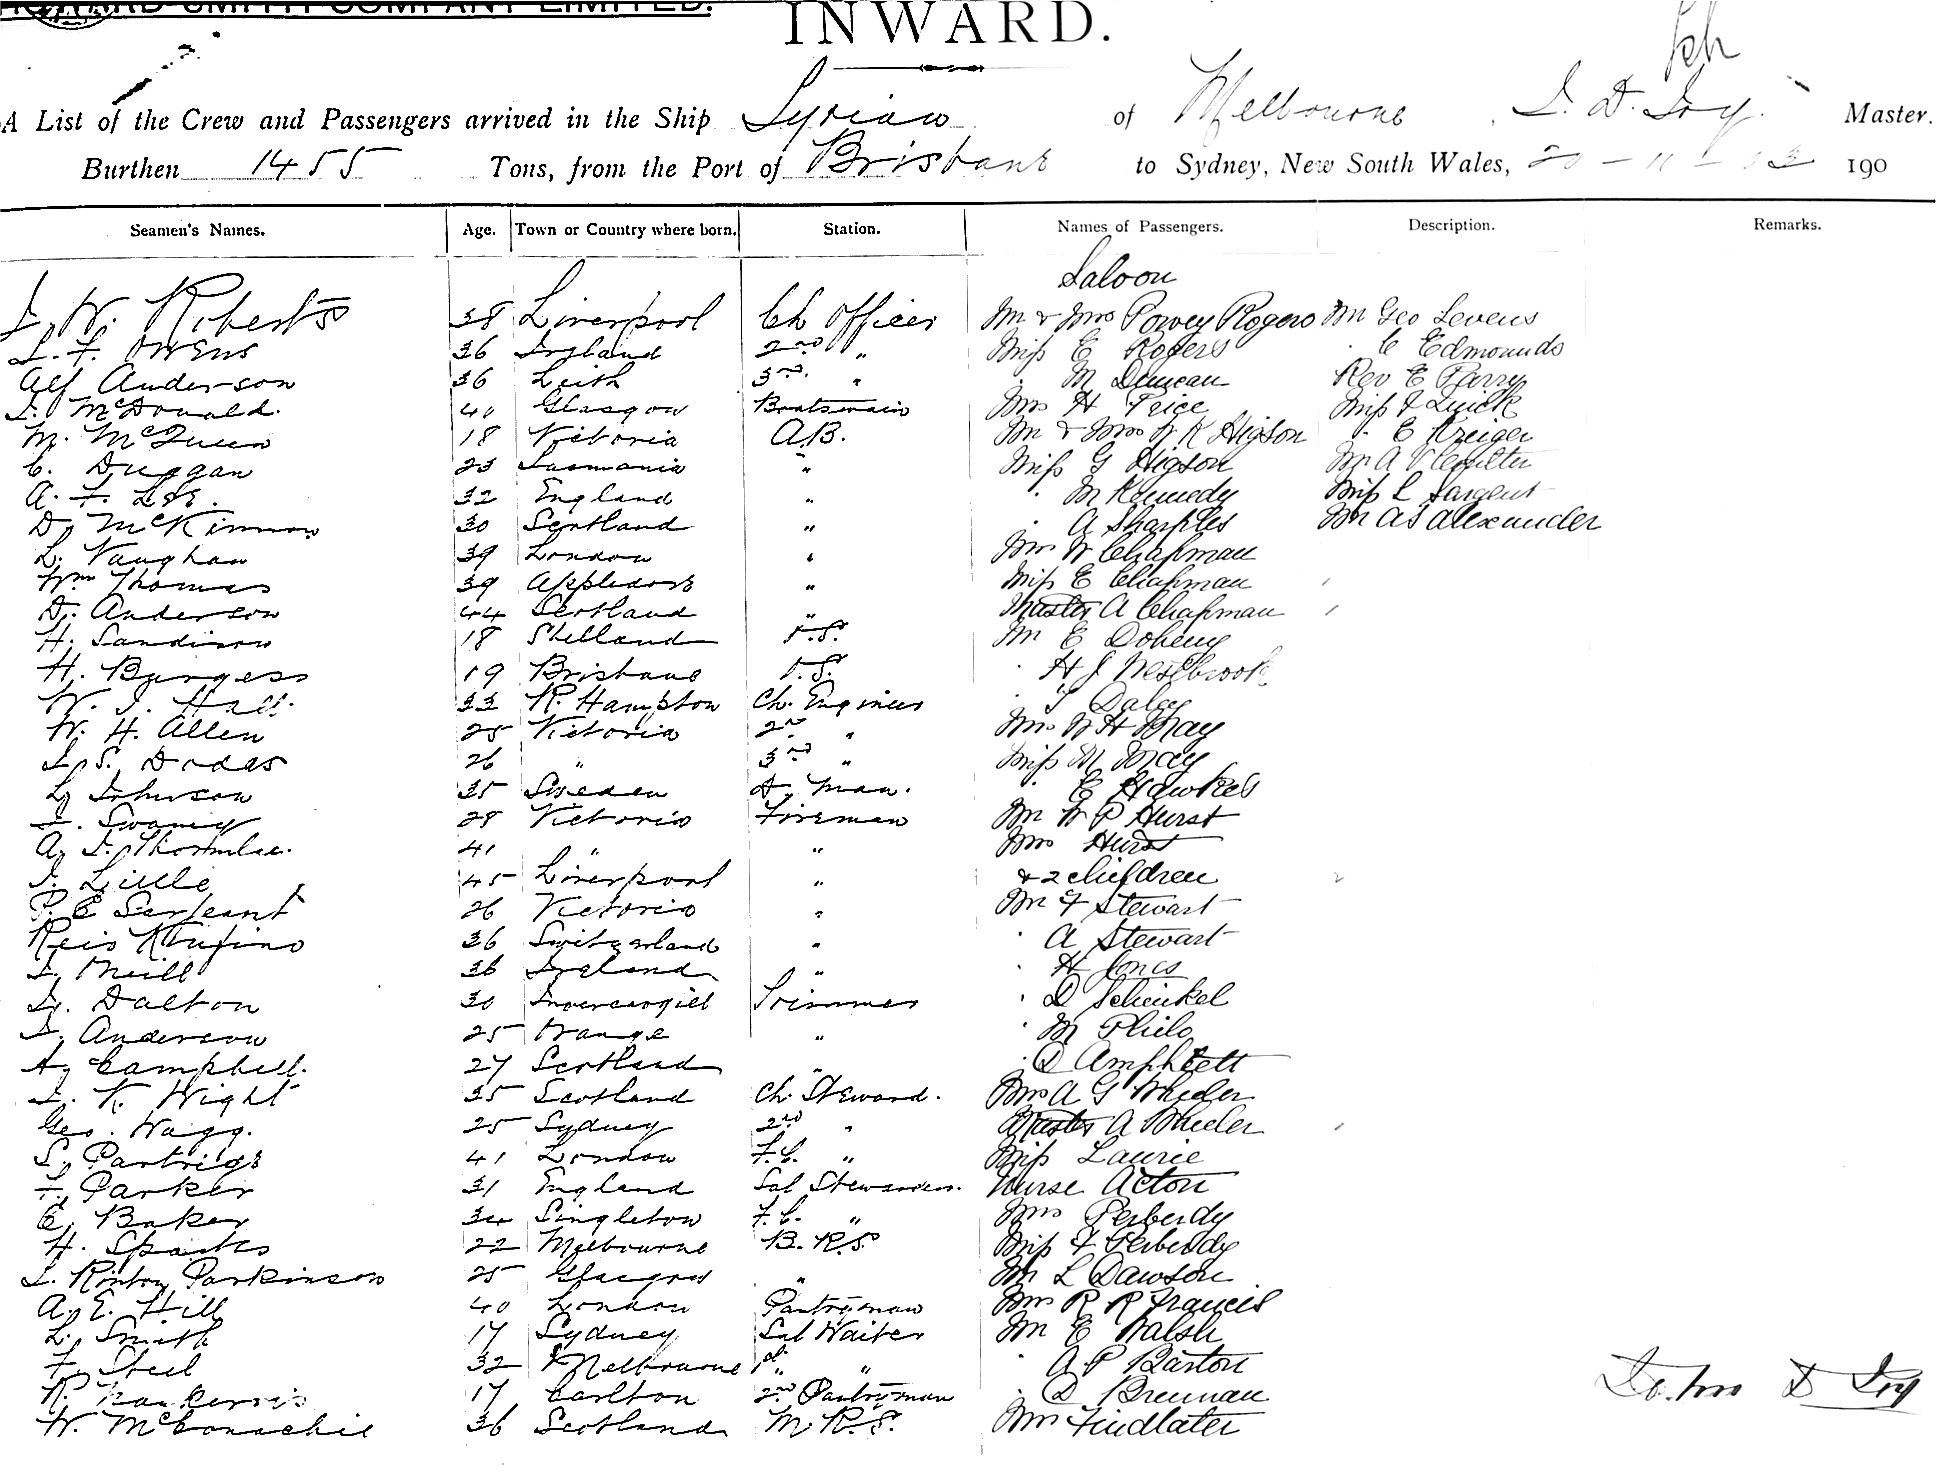 HOWARD SMITH COMPANY LIMITED.
INWARD.
A List of the Crew and Passengers arrived in the Ship Syrian of Melbourne, J. D. Ivy. Master.
Burthen 1455 Tons, from the Port of Brisbane to Sydney, New South Wales, 20-11-03 190
Seamen's Names. Age. Town or Country where born. Station. Names of Passengers. Description. Remarks.
Saloon
J. W. Roberts 38 Liverpool Ch Officer Mr & Mrs Povey Rogers Mr Geo Levens
L. F. Owens 36 Ireland 2nd " Miss E Rogers " C Edmounds
Alf Anderson 36 Leith 3rd. " " M Duncan Rev E Parry
J. McDonald. 40 Glasgow Boatswain Mrs H Price Miss F Quick
M. McQueen 18 Victoria A.B. Mr & Mrs W K Higson " E Kreiger
C. Duggan 23 Tasmania " Miss G Higson Mr A V Coulter
A. F. Lee. 32 England " " M Kennedy Miss L Sargent
D. McKinnon 30 Scotland " " A Sharples Mr A S Alexander
L. Vaughan 39 London " Mrs W Chapman
Wm Thomas 39 Appledore " Miss E Chapman
D. Anderson 44 Scotland " Master A Chapman
H. Sandison 18 Shetland O.S. Mr E Doheny
H. Burgess 19 Brisbane O.S. " H J Westbrook
W. J. Hall. 33 R. Hampton Ch. Engineer " T Daley
W. H. Allen 25 Victoria 2nd " Mrs W H Gray
J. S. Dodds 26 " 3rd " Miss M Gray
J. Johnson 35 Sweden D. Man. " E Hawkes
J. Swaney 28 Victoria Fireman Mr W P Hurst
A. J. Thormlee. 41 " " Mrs Hurst
J. Lille 45 Liverpool " & 2 children
P. E Serjeant 26 Victoria " Mr F Stewart
Reis Rufino 36 Switzerland " " A Stewart
J. Neill 36 Ireland " " H Jones
J. Dalton 30 Invercargill Trimmer " D Schenkel
J. Anderson 25 Orange " " M Philo
A. Campbell. 27 Scotland " " D Amphlett
J. K. Wight 35 Scotland Ch. Steward. Mrs A G Wheeler
Geo. Wagg. 25 Sydney 2nd " Master A Wheeler
S. Partridge 41 London F.C. " Miss Laurie
F. Parker 31 England Sal Stewardess. Nurse Acton
E. Baker 34 Singleton F.C. " Mrs Perberdy
H. Sparks 22 Melbourne B.R.S. Miss F Perberdy
J. Rinton Parkinson 25 Glasgow " Mr L Dawson
A. E. Hill 40 London Pantryman Mrs R R Francis
L. Smith 17 Sydney Sal Waiter Mr E Walsh
F. Steel 32 Melbourne 1st " " " A P Barton
R. 17 Carlton 2nd Pantryman " D Brennan
W. McConachie 36 Scotland M.R.S. Mrs Findlater
John D Ivy